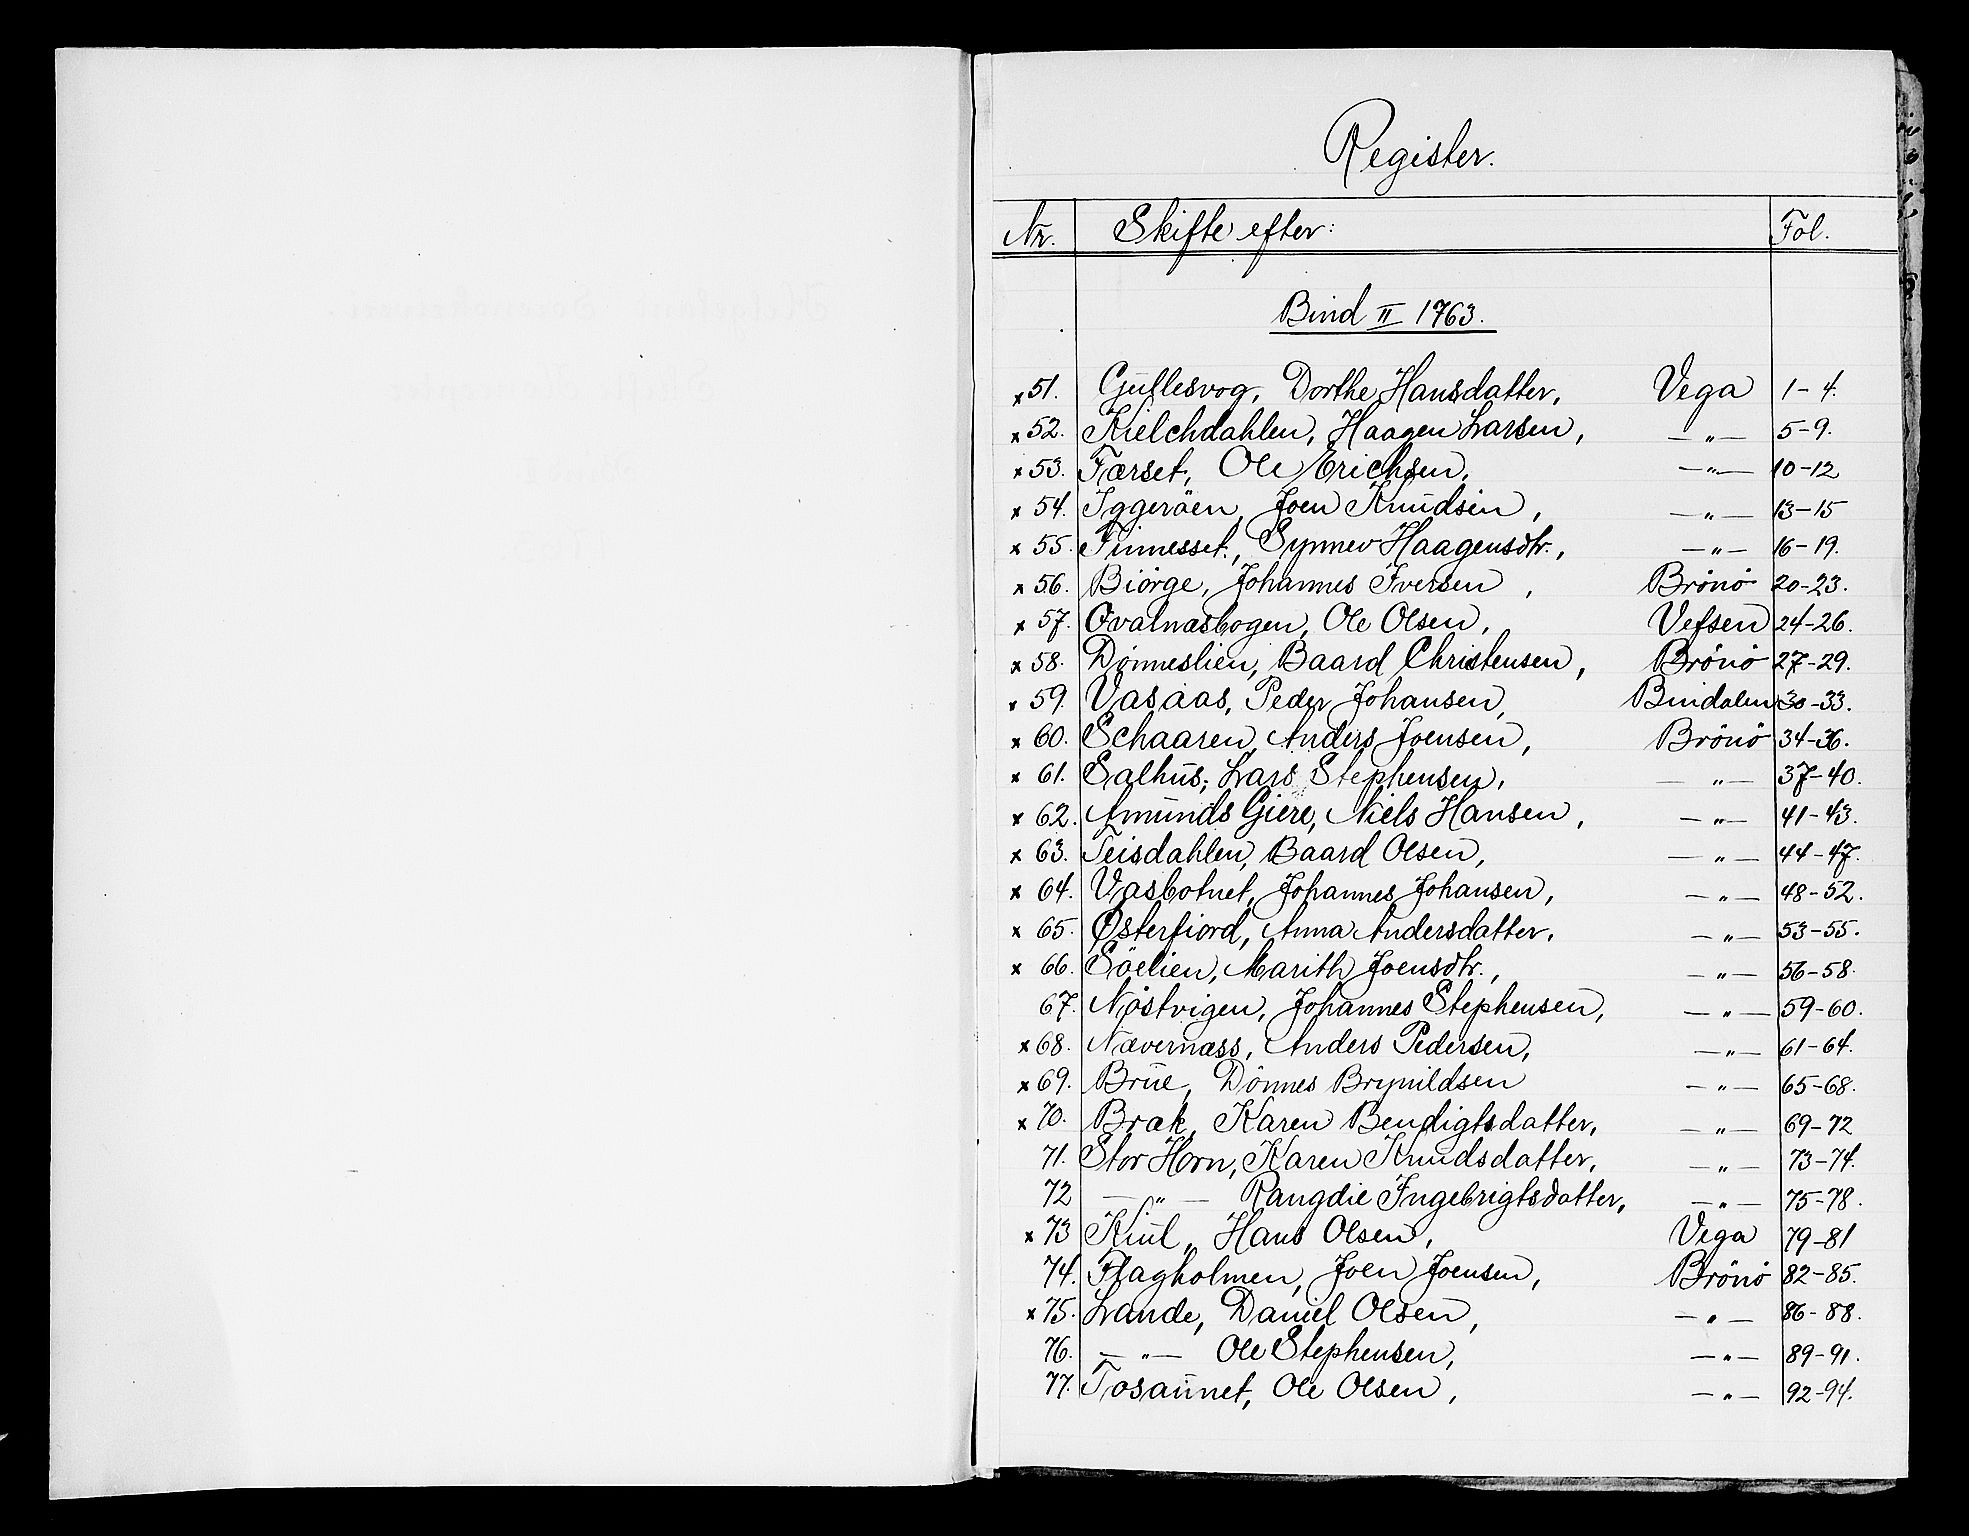 Register.
Nr. Skifte efter: Fol.
Bind II 1763.
x 51. Gullesvog, Dorthe Hansdatter, Vega 1-4.
x 52. Kielchdahlen, Haagen Larsen, — „ — 5-9.
x 53. Færset, Ole Erichsen, — „ — 10-12
x 54. Iggerøen, Joen Knudsen, — „ — 13-15
x 55. Finnesset, Synnev Haagensdtr., — „ — 16-19.
x 56. Biørge, Johannes Iversen, Brønø 20-23.
x 57. Qvalnæsbogen, Ole Olsen, Vefsen 24-26.
x 58. Dønneslien, Baard Christensen, Brønø 27-29.
x 59. Vasaas, Peder Johansen, Bindalen 30-33.
x 60. Schaaren, Anders Joensen, Brønø 34-36.
x 61. Salhus, Lars Stephensen, — „ — 37-40.
x 62. Amunds Giere, Niels Hansen, — „ — 41-43.
x 63. Teisdahlen, Baard Olsen, — „ — 44-47.
x 64. Vasbotnet, Johannes Johansen, — „ — 48-52.
x 65. Østerfiord, Anna Andersdatter, — „ — 53-55.
x 66. Søelien, Marith Joensdtr., — „ — 56-58.
67. Nøstvigen, Johannes Stephensen, — „ — 59-60.
x 68. Nævernæss, Anders Pedersen, — „ — 61-64.
x 69. Brue, Dønnes Brynildsen — „ — 65-68.
x 70. Bræk, Karen Bendigtsdatter, — „ — 69-72
71. Stor Horn, Karen Knudsdatter, — „ — 73-74.
72 — „ — Rangdie Ingebrigtsdatter, — „ — 75-78.
x 73 Kiul, Hans Olsen, Vega 79-81
74. Flagholmen, Joen Joensen, Brønø 82-85.
x 75. Lande, Daniel Olsen, — „ — 86-88.
76. — „ — Ole Stephensen, — „ — 89-91.
77. Tosaunet, Ole Olsen, — „ — 92-94.